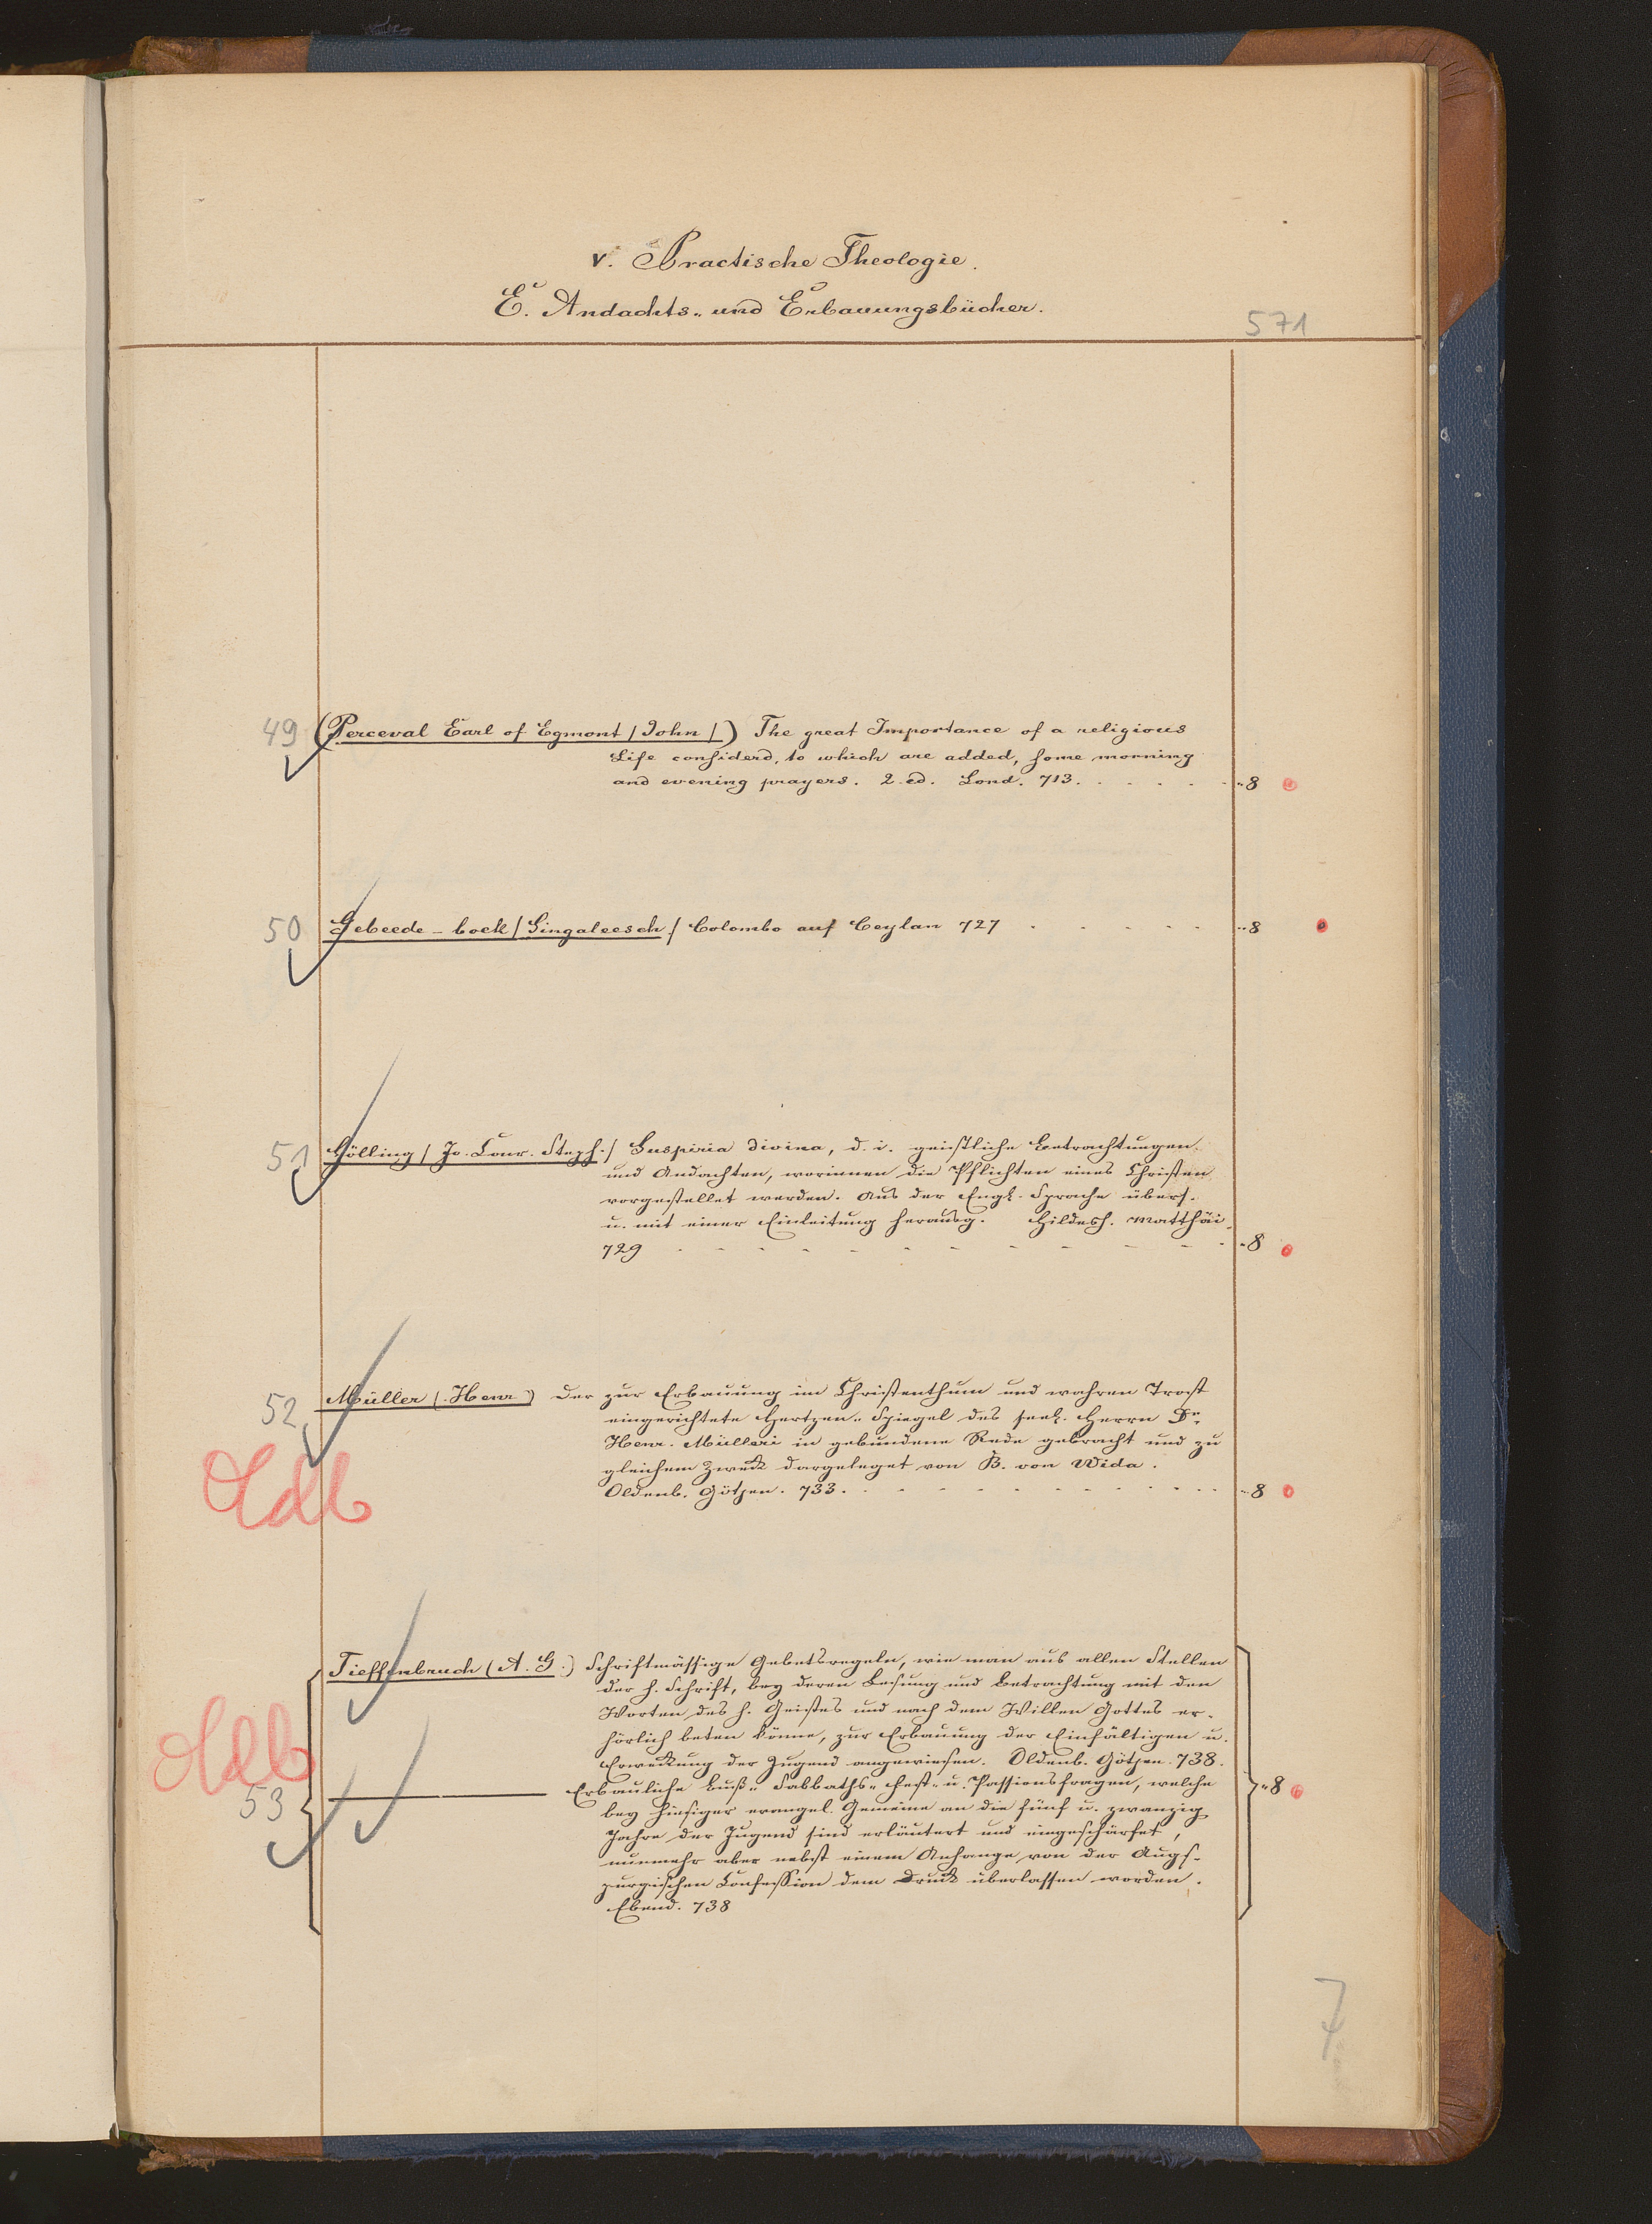 V. Practische Theologie.
E. Andachts- und Erbauungsbücher.
571
49 (Perceval Earl of Egmont / John /) The great Importance of a religious
Life considerd, to which are added, some morning
and evening prayers. 2. ed. Lond. 713. . . . . . " 8
50 Gebeede-boek / Singaleesch / Colombo auf Ceylan 727 . . . . . " 8
51 Hölling / Jo. Conr. Steph. / Suspiria divina, d. i. geistliche Betrachtungen
und Andachten, worinnen die Pflichten eines Christen
vorgestellet werden. Aus der Engl. Sprache übers.
u. mit einer Einleitung herausg. Hildesh. Matthäi.
729 - - - - - - - - - - - 8
52 Müller (Henr.) Der zur Erbauung im Christenthum und wahren Trost
eingerichtete Hertzen-Spiegel des seel. Herrn Dr.
Henr. Mülleri in gebundene Rede gebracht und zu
gleichem Zweck dargeleget von B. von Wida.
Oldb
Oldenb. Götjen. 733. - - - - - - - - - " 8
Tieffenbruch (A. G.) Schriftmässige Gebetsregeln, wie man aus allen Stellen
der h. Schrift, bey deren Lesung und Betrachtung mit den
Worten des h. Geistes und nach dem Willen Gottes er-
hörlich beten könne, zur Erbauung der Einfältigen u.
Erweckung der Jugend angewiesen. Oldenb. Götjen. 738.
Oldb
53 ——— Erbauliche Buß- Sabbaths- Fest- u. Passionsfragen, welche " 8
bey hiesiger evangel. Gemeine an die fünf u. zwanzig
Jahre der Jugend sind erläutert und eingeschärfet,
nunmehr aber nebst einem Anhange von der Augs-
purgischen Confession dem Druck überlassen worden.
Ebend. 738
7